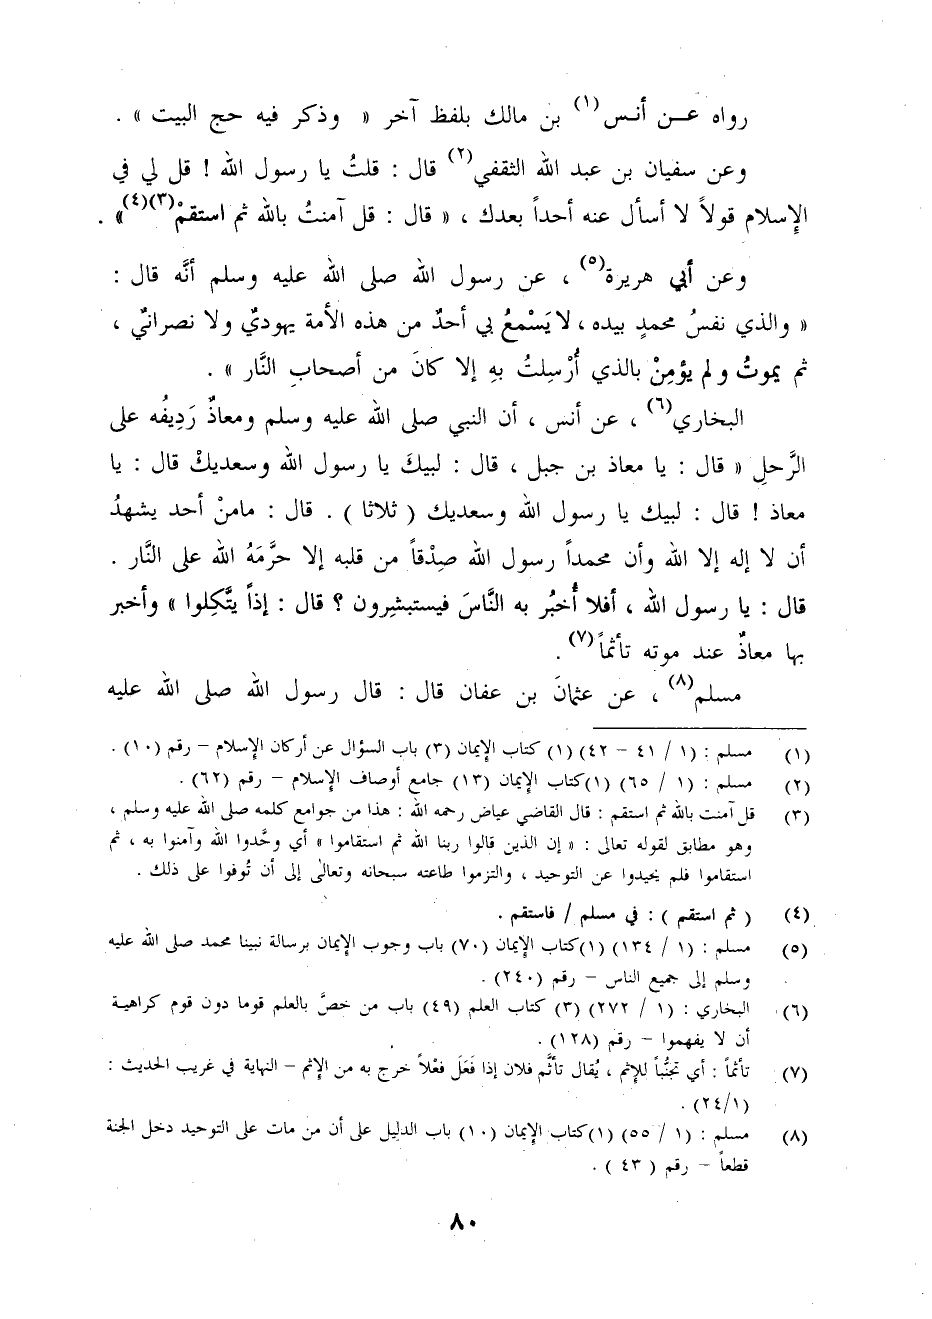 رواه عن أنس(١) بن مالك بلفظ آخر « وذكر فيه حج البيت » .
وعن سفيان بن عبد الله الثقفي(٢) قال : قلتُ يا رسول الله ! قل لي في
الإسلام قولاً لا أسأل عنه أحداً بعدك ، « قال : قل آمنتُ بالله ثم استقمْ(٣)(٤)» .
وعن أبي هريرة(٥) ، عن رسول الله صلى الله عليه وسلم أنَّه قال :
« والذي نفسُ محمدٍ بيده ، لا يَسْمعُ بي أحدٌ من هذه الأمة يهوديٌ ولا نصرانيٌ ،
ثم يموتُ ولم يؤمِنْ بالذي أُرْسِلتُ بهِ إلا كانَ من أصحابِ النَّار » .
البخاري(٦) ، عن أنس ، أن النبي صلى الله عليه وسلم ومعاذٌ رَدِيفُه على
الرَّحلِ « قال : يا معاذ بن جبل ، قال : لبيكَ يا رسول الله وسعديكْ قال : يا
معاذ ! قال : لبيك يا رسول الله وسعديك ( ثلاثا ) . قال : مامنْ أحد يشهدُ
أن لا إله إلا الله وأن محمداً رسول الله صِدْقاً من قلبه إلا حرَّمَهُ الله على النَّار .
قال : يا رسول الله ، أفلا أُخبُر به النَّاسَ فيستبشِرون ؟ قال : إذاً يتَّكِلوا » وأخبر
بها معاذٌ عند موته تأثماً(٧) .
مسلم(٨) ، عن عثمانَ بن عفان قال : قال رسول الله صلى الله عليه
(١) مسلم : (١ / ٤١ – ٤٢) (١) كتاب الإيمان (٣) باب السؤال عن أركان الإسلام – رقم (١٠) .
(٢) مسلم : (١ / ٦٥) (١)كتاب الإيمان (١٣) جامع أوصاف الإسلام – رقم (٦٢) .
(٣) قل آمنت بالله ثم استقم : قال القاضي عياض رحمه الله : هذا من جوامع كلمه صلى الله عليه وسلم ،
وهو مطابق لقوله تعالى : « إن الذين قالوا ربنا الله ثم استقاموا » أي وحَّدوا الله وآمنوا به ، ثم
استقاموا فلم يحيدوا عن التوحيد ، والتزموا طاعته سبحانه وتعالى إلى أن تُوفوا على ذلك .
(٤) ( ثم استقم ) : في مسلم / فاستقم .
(٥) مسلم : (١ / ١٣٤) (١)كتاب الإيمان (٧٠) باب وجوب الإيمان برسالة نبينا محمد صلى الله عليه
وسلم إلى جميع الناس – رقم (٢٤٠) .
(٦) البخاري : (١ / ٢٧٢) (٣) كتاب العلم (٤٩) باب من خصَّ بالعلم قوما دون قوم كراهية
أن لا يفهموا – رقم (١٢٨) .
(٧) تأثماً : أي تجنُّباً للإثم ، يُقال تأثَّم فلان إذا فَعَلَ فعْلاً خرج به من الإثم – النهاية في غريب الحديث :
(٢٤/١) .
(٨) مسلم : (١ / ٥٥) (١)كتاب الإيمان (١٠) باب الدليل على أن من مات على التوحيد دخل الجنة
قطعاً – رقم ( ٤٣ ) .
٨٠